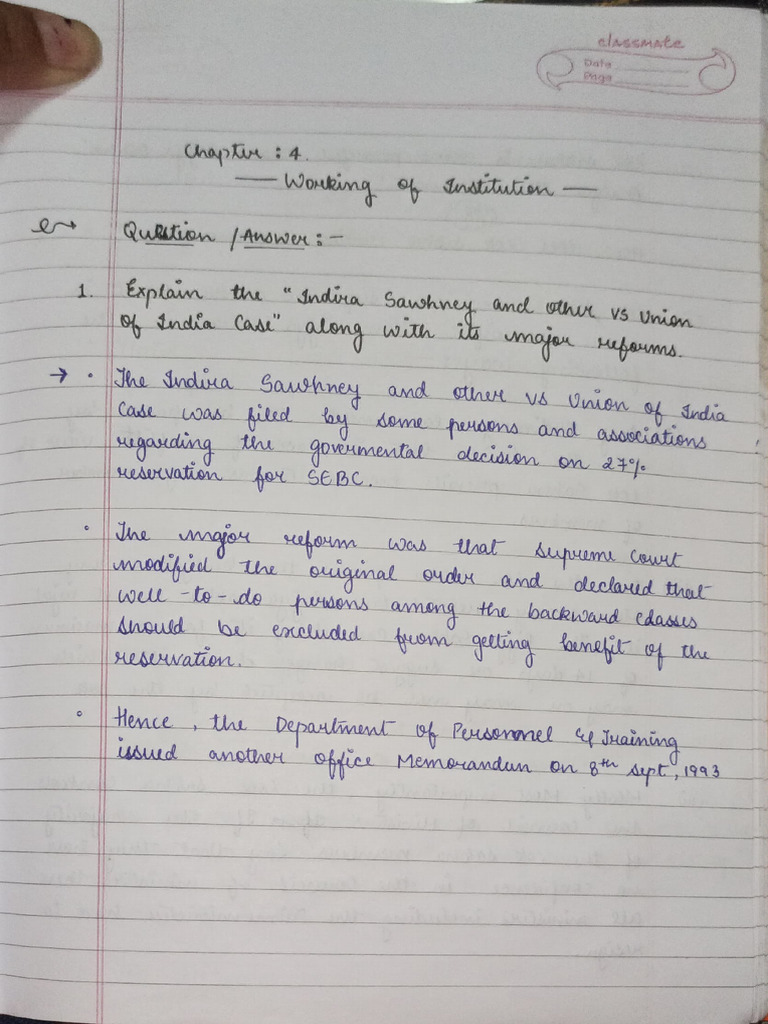 classmate
Date
Page
Chapter : 4.
— Working of Institution —
Question / Answer : -
1. Explain the "Indira Sawhney and other vs Union
of India Case" along with its major reforms.
→ • The Indira Sawhney and other vs Union of India
Case was filed by some persons and associations
regarding the govermental decision on 27%
reservation for SEBC.
• The major reform was that supreme court
modified the original order and declared that
well-to-do persons among the backward classes
should be excluded from getting benefit of the
reservation.
• Hence, the Department of Personnel & Training
issued another office Memorandun on 8th sept, 1993